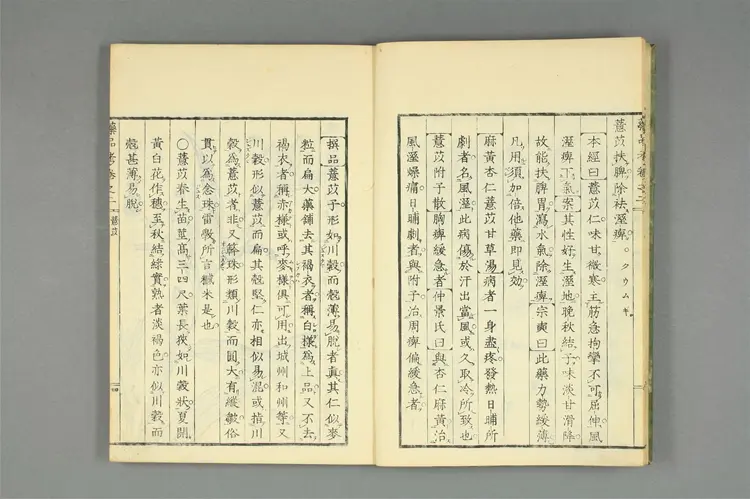 薏苡扶脾除祛溼痺。クカムギ
本經曰薏苡仁味甘微寒主筋急拘攣不可屈伸風
溼痺下氣案其性好生溼地晚秋結子味淡甘滑降
故能扶脾胃瀉水氣除溼痺宗奭曰此藥力勢緩薄
凡用須加倍他藥即見効
麻黃杏仁薏苡甘草湯病者一身盡疼發熱日晡所
劇者名風溼此病傷於汗出當風或久取冷所致也
薏苡附子散胸痺緩急者仲景氏曰與杏仁麻黃治
風溼燥痛日晡劇者與附子治周痺偏緩急者
撰品薏苡子形如川穀而殼薄易脫者真其仁似麥
粒而扁大藥鋪去其褐衣者稱白様爲上品又不去
褐衣者稱赤様或呼麥様俱可用出城州和州等又
川穀形似薏苡而扁其殼堅仁亦相似易混或指川
穀爲薏苡者非又觧珠形類川穀而圓大有縱皺俗
貫以爲念珠雷斅所言糯米是也
○薏苡春生苗莖高三四尺葉長狹如川穀狀夏開
黃白花作穗至秋結綠實熟者淡褐色亦似川穀而
殼甚薄易脫
藥品考卷之二
薏苡